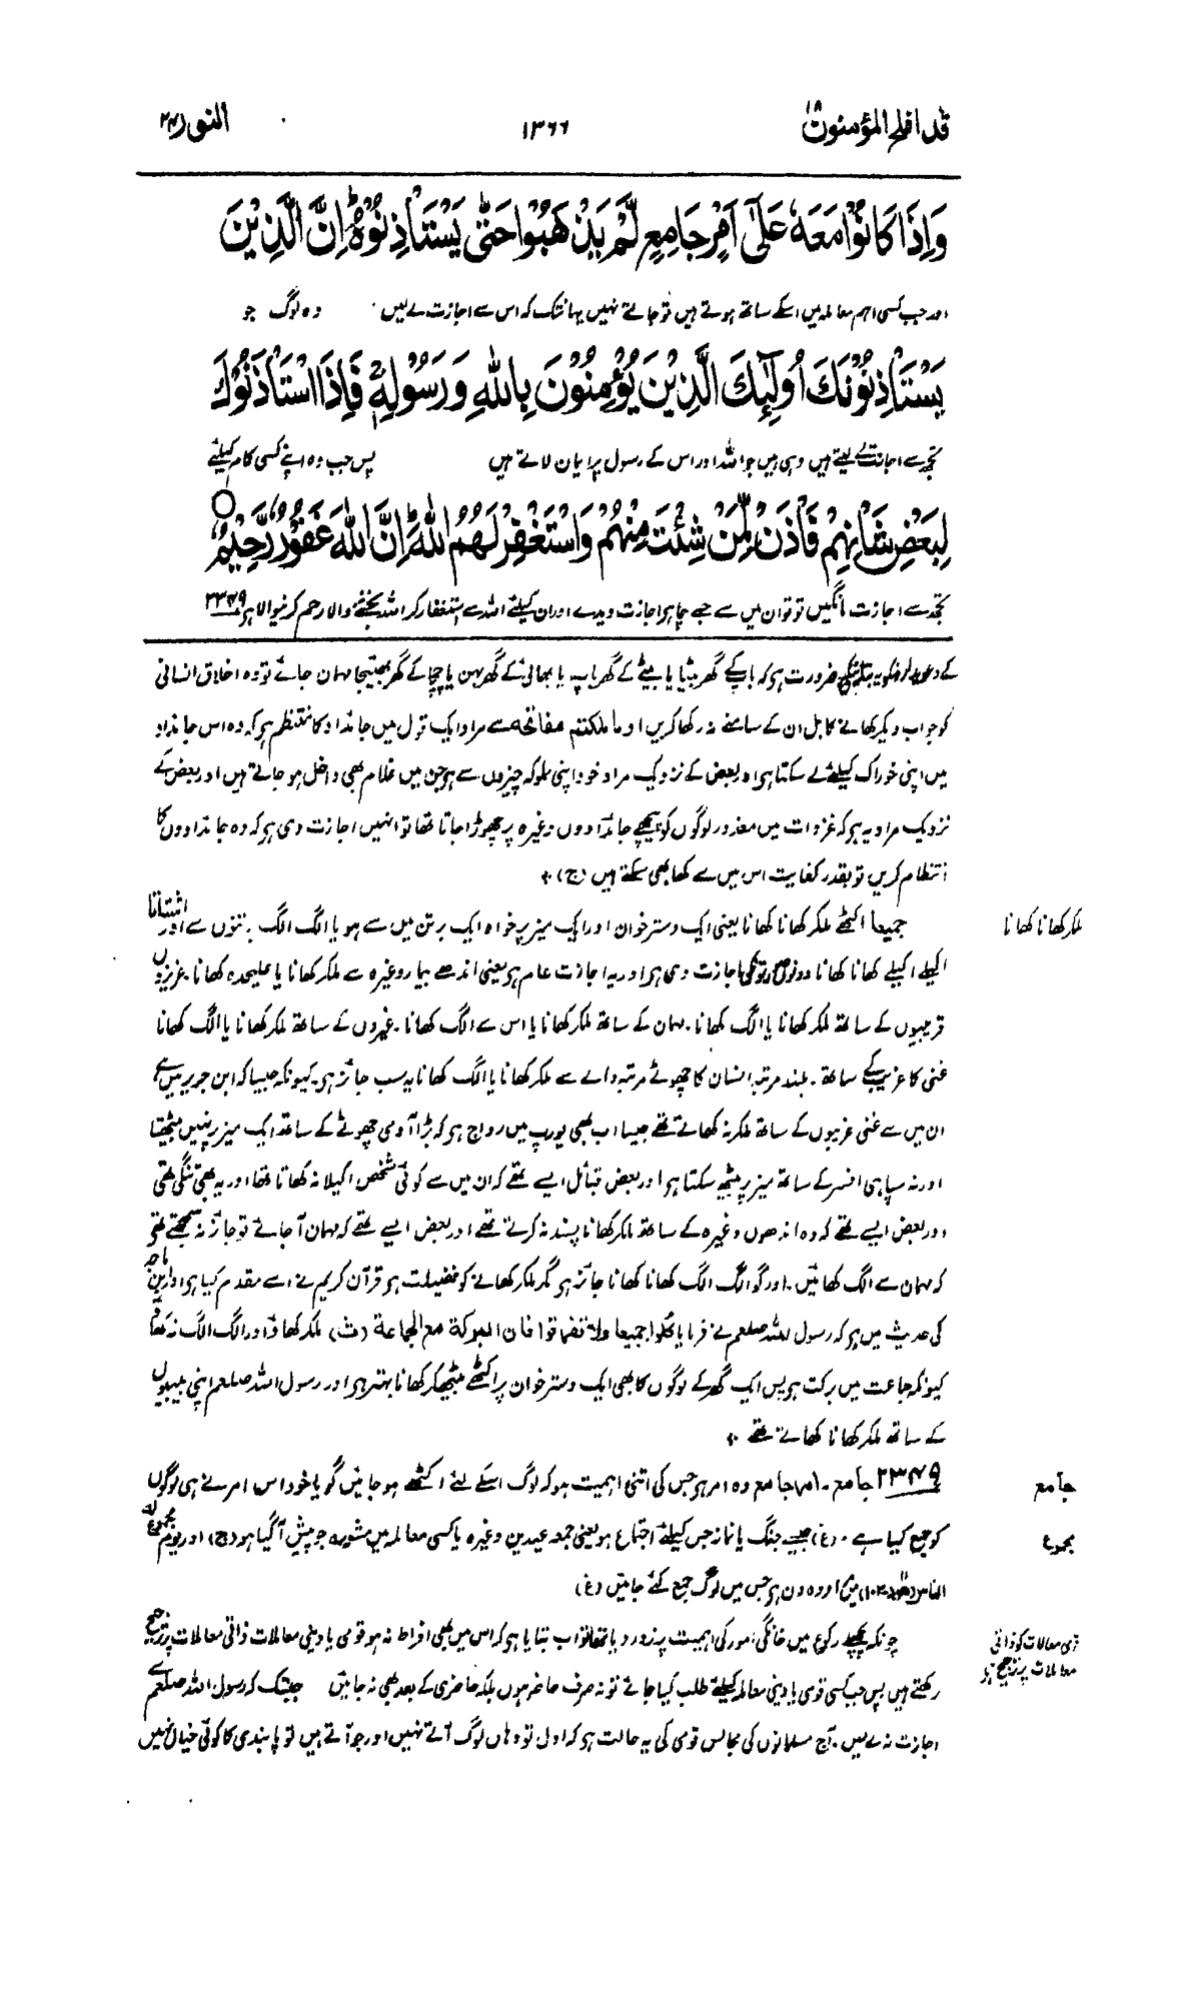 قد افلح المؤمنون ۱۸
۱۳۶۶
النور ۲۴
وَاِذَا كَانُوْا مَعَهٗ عَلٰٓى اَمْرٍ جَامِعٍ لَّمْ يَذْهَبُوْا حَتّٰى يَسْتَاْذِنُوْهُ ؕ اِنَّ الَّذِيْنَ
اور جب کسی اہم معاملہ میں اسکے ساتھ ہوتے ہیں تو جاتے نہیں یہانتک کہ اس سے اجازت لے لیں وہ لوگ جو
يَسْتَاْذِنُوْنَكَ اُولٰٓئِكَ الَّذِيْنَ يُؤْمِنُوْنَ بِاللّٰهِ وَرَسُوْلِهٖ ۚ فَاِذَا اسْتَاْذَنُوْكَ
تجھ سے اجازت لیتے ہیں وہی ہیں جو اللہ اور اس کے رسول پر ایمان لاتے ہیں پس جب وہ اپنے کسی کام کیلئے
لِبَعْضِ شَاْنِهِمْ فَاْذَنْ لِّمَنْ شِئْتَ مِنْهُمْ وَاسْتَغْفِرْ لَهُمُ اللّٰهَ ؕ اِنَّ اللّٰهَ غَفُوْرٌ رَّحِيْمٌ ○
تجھ سے اجازت مانگیں تو تو ان میں سے جسے چاہے اجازت دیدے اور ان کیلئے اللہ سے استغفار کر اللہ بخشنے والا رحم کرنیوالا ہے ۲۳۴۹
ضرورت ہو کہ باپ کے گھر بیٹا یا بیٹے کے گھر باپ یا بھائی کے گھر بہن یا چچا کے گھر بھتیجا مہمان جائے تو وہ اخلاق انسانی
کو جواب دیکر کھانے کا بل ان کے سامنے نہ رکھا کریں اوما ملکتم مفاتحہ سے مراد ایک قول میں جائداد کا منتظم ہے کہ وہ اس جائداد
میں اپنی خوراک کیلئے لے سکتا ہے اور بعض کے نزدیک مراد خود اپنی مملوکہ چیزوں سے ہے جن میں غلام بھی داخل ہو جاتے ہیں اور بعض کے
نزدیک مراد یہ ہے کہ غزوات میں معذور لوگوں کو پیچھے جائدادوں وغیرہ پر چھوڑا جاتا تھا تو انہیں اجازت دی ہے کہ وہ جائدادوں کا
انتظام کریں تو بقدر کفایت اس میں سے کھا بھی سکتے ہیں (ج) ۰
ملکر کھانا کھانا
جمیعا اکٹھے ملکر کھانا کھانا یعنی ایک دسترخوان اور ایک میز پر خواہ ایک برتن میں سے ہو یا الگ الگ برتنوں سے اور اشتاتا
اکیلے اکیلے کھانا کھانا دونوں کی اجازت دی ہے اور یہ اجازت عام ہے یعنی اندھے بیمار وغیرہ سے ملکر کھانا یا علیحدہ کھانا۔ عزیزوں
قریبیوں کے ساتھ ملکر کھانا یا الگ کھانا۔ مہمان کے ساتھ ملکر کھانا یا اس سے الگ کھانا۔ غیروں کے ساتھ ملکر کھانا یا الگ کھانا
غنی کا غریب کے ساتھ۔ بلند مرتبہ انسان کا چھوٹے مرتبہ والے سے ملکر کھانا یا الگ کھانا یہ سب جائز ہے۔ کیونکہ جیسا کہ ابن جریر میں ہے
ان میں سے غنی غریبوں کے ساتھ ملکر نہ کھاتے تھے جیسا اب بھی یورپ میں رواج ہے کہ بڑا آدمی چھوٹے کے ساتھ ایک میز پر نہیں بیٹھتا
اور نہ سپاہی افسر کے ساتھ میز پر بیٹھ سکتا ہے اور بعض قبائل ایسے تھے کہ ان میں سے کوئی شخص اکیلا نہ کھاتا تھا اور یہ بھی تنگی تھی
اور بعض ایسے تھے کہ وہ اندھوں وغیرہ کے ساتھ ملکر کھانا پسند نہ کرتے تھے اور بعض ایسے تھے کہ مہمان آ جائے تو جائز نہ سمجھتے تھے
کہ مہمان سے الگ کھائیں۔ اور گو الگ الگ کھانا کھانا جائز ہے مگر ملکر کھانے کو فضیلت ہے قرآن کریم نے اسے مقدم کیا ہے اور ابن ماجہ
کی حدیث میں ہے کہ رسول اللہ صلعم نے فرمایا کلوا جمیعا ولا تفرقوا فان البرکة مع الجماعة (ث) ملکر کھاؤ اور الگ الگ نہ کھاؤ
کیونکہ جماعت میں برکت ہے پس ایک گھر کے لوگوں کا بھی ایک دسترخوان پر اکٹھے بیٹھ کر کھانا بہتر ہے اور رسول اللہ صلعم اپنی بیبیوں
کے ساتھ ملکر کھانا کھاتے تھے ۰
جامع
۲۳۴۹ جامع۔ امر جامع وہ امر ہے جس کی اتنی اہمیت ہو کہ لوگ اسکے لئے اکٹھے ہو جائیں گویا خود اس امر نے ہی لوگوں
مجموع
کو جمع کیا ہے۔ (غ) جیسے جنگ یا نماز جس کیلئے اجتماع ہو یعنی جمعہ عیدین وغیرہ یا کسی معاملہ میں مشورہ جو پیش آ گیا ہو (ج) اور یوم مجموع لہ
الناس (ھود ۱۰۳) میں مراد وہ دن ہے جس میں لوگ جمع کئے جائیں (غ)
قومی معاملات کو ذاتی
معاملات پر ترجیح دو
چونکہ پچھلے رکوع میں خانگی امور کی اہمیت پر زور دیا تھا تو اب بتایا ہے کہ اس میں بھی افراط نہ ہو قومی یا دینی معاملات ذاتی معاملات پر ترجیح
رکھتے ہیں پس جب کسی قومی یا دینی معاملہ کیلئے طلب کیا جائے تو نہ صرف حاضر ہوں بلکہ حاضری کے بعد بھی نہ جائیں جبتک کہ رسول اللہ صلعم سے
اجازت نہ لے لیں۔ آج مسلمانوں کی مجالس قومی کی یہ حالت ہے کہ اول تو وہاں لوگ آتے نہیں اور جو آتے ہیں تو پابندی کا کوئی خیال نہیں